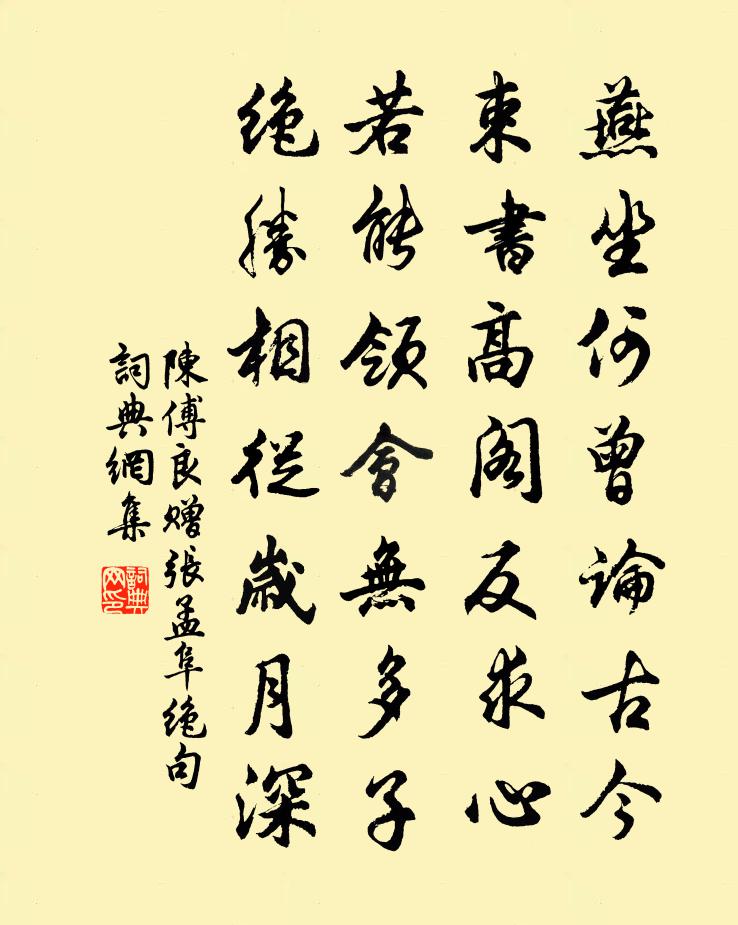 燕坐何曾論古今
束書高阁反求心
若能领會無多子
绝勝相從歲月深
陳傅良赠張孟阜绝句
詞典網集
詞典网印